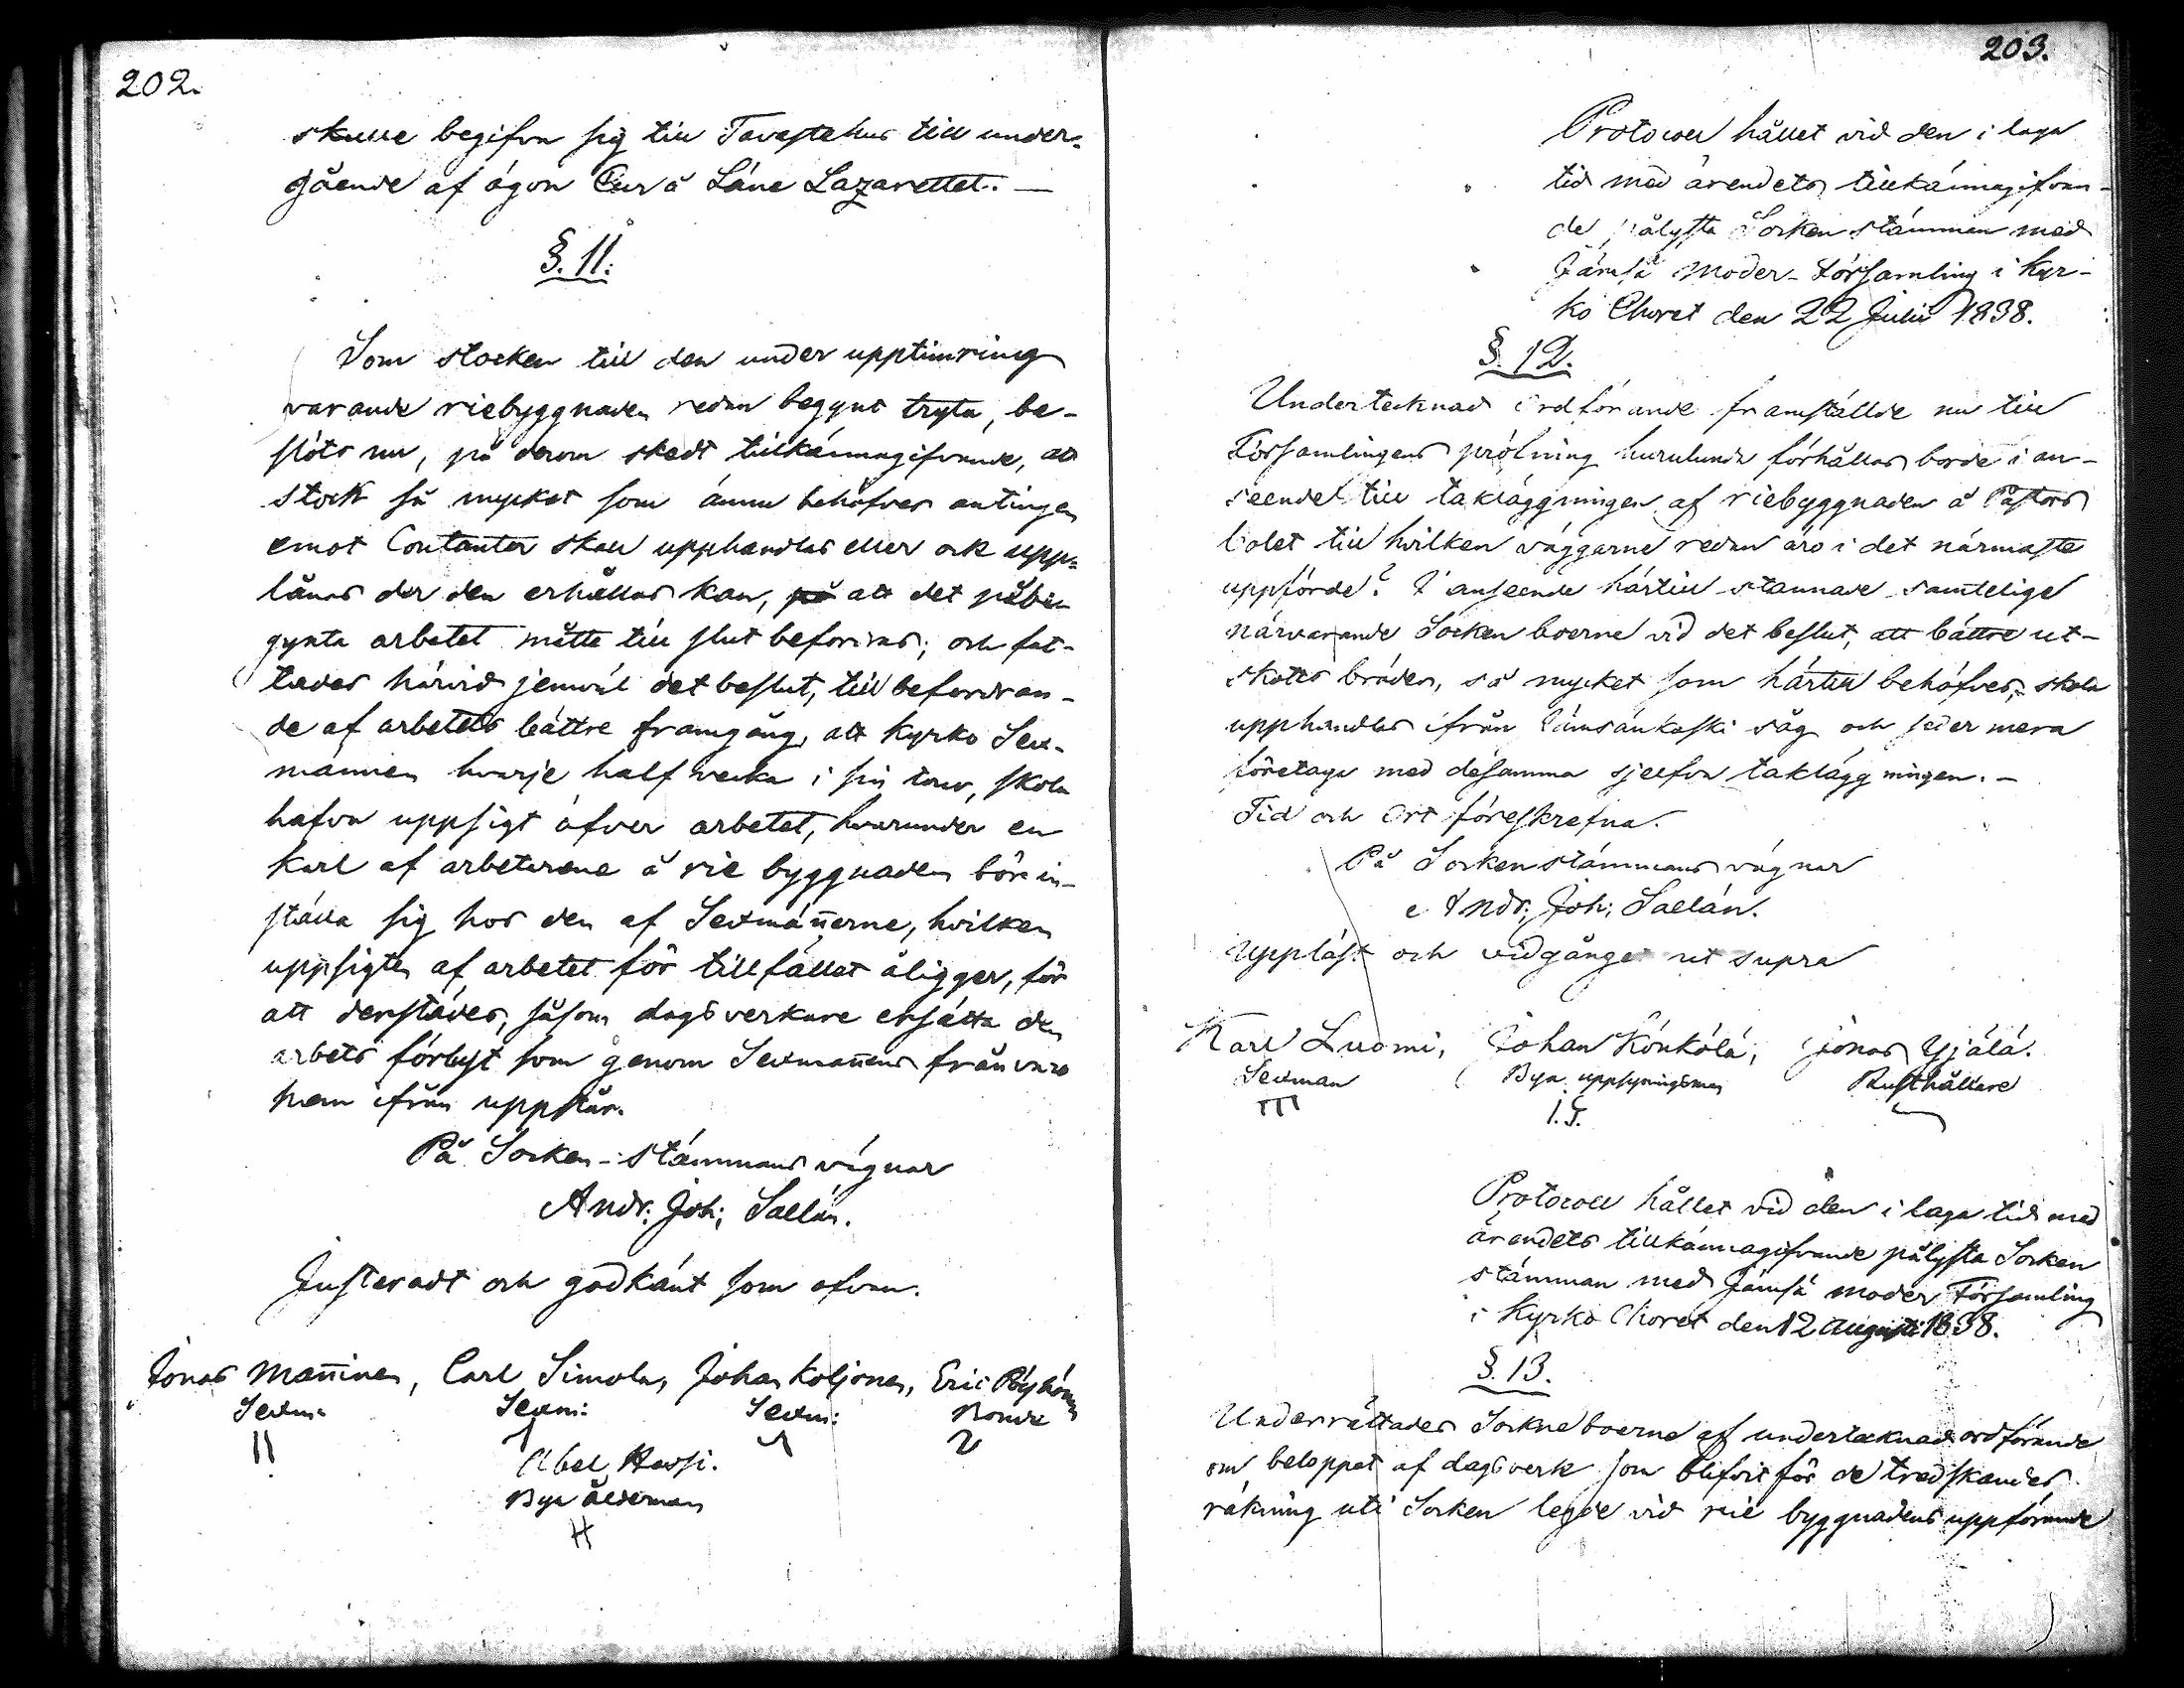 202.
skulle begifva sig till Tavastehus till under-
gående af ögon Cur å Läne Lazarettet. —
§. 11.
Som stocken till den under upptimring
varande riebyggnaden redan begynt tryta, be-
slöts nu, på derom skedt tillkännagifvande, att
stock så mycket som ännu behöfves antingen
emot Contanter skall upphandlas eller ock upp-
lånas der den erhållas kan, på att det påbe-
gynta arbetet måtte till slut befordras; och fat-
tades härvid jemväl det beslut, till befordran-
de af arbetets bättre framgång, att Kyrko Sex-
mannen hvarje half wecka i sin tour, skola
hafva uppsigt öfver arbetet, hvarunder en
karl af arbetarene å rie byggnaden bör in-
ställa sig hos den af Sexmän̄erne, hvilken
uppsigten af arbetet för tillfället åligger, för
att derstädes, såsom dagsverkare ersätta den
arbets förlust som genom Sexman̄ens frånvaro
hem ifrån uppstår.
På Socken-stämmans vägnar
Andr. Joh; Sallén.
Justeradt och godkänt som ofvan.
Jonas Man̄inen, Carl Simola, Johan Koljonen, Eric
Sexm: Sexm: Sexm: Bonde
Abel Hassi.
Bya ålderman
203.
Protocoll hållet vid den i laga
tid med ärendets tillkännagifvan-
de pålysta Sockenstämman med
Jämsä Moder-Församling i Kyr-
ko Choret den 22 Julii 1838.
§. 12.
Undertecknad Ordförande framställde nu till
Församlingens pröfning hurulunda förhållas borde i an-
seende till takläggningen af riebyggnaden å Pastors
bolet till hvilken väggarne redan äro i det närmaste
uppförde? I anseende härtill stannade samtelige
närvarande Socken boerne vid det beslut, att bättre ut-
skotts bräder, så mycket som härtill behöfves, skola
upphandlas ifrån Jämsänkoski såg och sedermera
företaga med desamma sjelfva takläggningen. —
Tid och Ort föreskrefna.
På Sockenstämmans vägnar
Andr; Joh; Sallén.
Uppläst och vidgånget ut supra
Karl Luomi, Johan Könkölä, Jonas Yjälä.
Sexman Bya uppsyningsman Rusthållare
I. S.
Protocoll hållet vid den i laga tid med
ärendets tillkännagifvande pålysta Socken
stämman med Jämsä moder Församling
i Kyrko Choret den 12 Augusti 1838.
§. 13.
Underrättades Sockneboerne af undertecknad ordförande
om beloppet af dagsverk som blifvit för de tredskandes
räkning uti Socken legde vid rie byggnadens uppförande